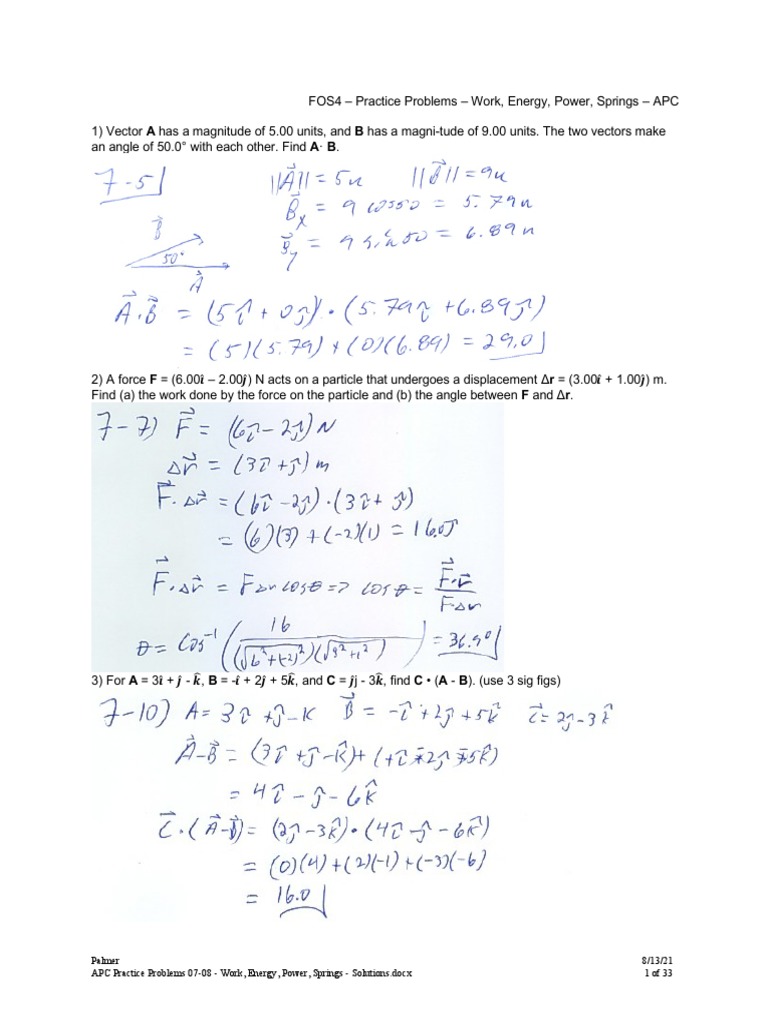 FOS4 – Practice Problems – Work, Energy, Power, Springs – APC
1) Vector A has a magnitude of 5.00 units, and B has a magni-tude of 9.00 units. The two vectors make
an angle of 50.0° with each other. Find A· B.
7-5
||A⃗|| = 5u ||B⃗|| = 9u
B⃗x = 9 cos50 = 5.79u
B⃗y = 9 sin50 = 6.89u
B⃗
50°
A⃗
A⃗·B⃗ = (5î + 0ĵ)·(5.79î + 6.89ĵ)
= (5)(5.79) + (0)(6.89) = 29.0
2) A force F = (6.00î – 2.00ĵ) N acts on a particle that undergoes a displacement Δr = (3.00î + 1.00ĵ) m.
Find (a) the work done by the force on the particle and (b) the angle between F and Δr.
7-7) F⃗ = (6î - 2ĵ) N
Δr⃗ = (3î + ĵ) m
F⃗·Δr⃗ = (6î - 2ĵ)·(3î + ĵ)
= (6)(3) + (-2)(1) = 16.0J
F⃗·Δr⃗ = FΔr cosθ => cosθ = F⃗·r⃗ / FΔr
θ = cos⁻¹(16 / (√6²+(-2)²)(√3²+1²)) = 36.9°
3) For A = 3î + ĵ - k̂, B = -î + 2ĵ + 5k̂, and C = ĵj - 3k̂, find C • (A - B). (use 3 sig figs)
7-10) A = 3î + ĵ - k B⃗ = -î + 2ĵ + 5k̂ C⃗ = 2ĵ - 3k̂
A⃗-B⃗ = (3î + ĵ - k̂) + (+î - 2ĵ - 5k̂)
= 4î - ĵ - 6k̂
C⃗·(A⃗-B⃗) = (2ĵ - 3k̂)·(4î - ĵ - 6k̂)
= (0)(4) + (2)(-1) + (-3)(-6)
= 16.0
Palmer 8/13/21
APC Practice Problems 07-08 - Work, Energy, Power, Springs - Solutions.docx 1 of 33